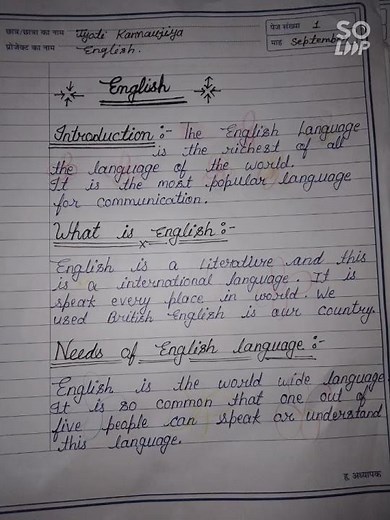 छात्र/छात्रा का नाम Jyoti Kannaujiya
पेज संख्या 1
प्रोजेक्ट का नाम English.
माह September
SO LOOP
English
Introduction :- The English Language
is the richest of all
the language of the world.
It is the most popular language
for communication.
What is English :-
English is a literature and this
is a international language. It is
speak every place in world. We
used British English is our country.
Needs of English language :-
English is the world wide language
It is so common that one out of
five people can speak or understand
this language.
ह. अध्यापक